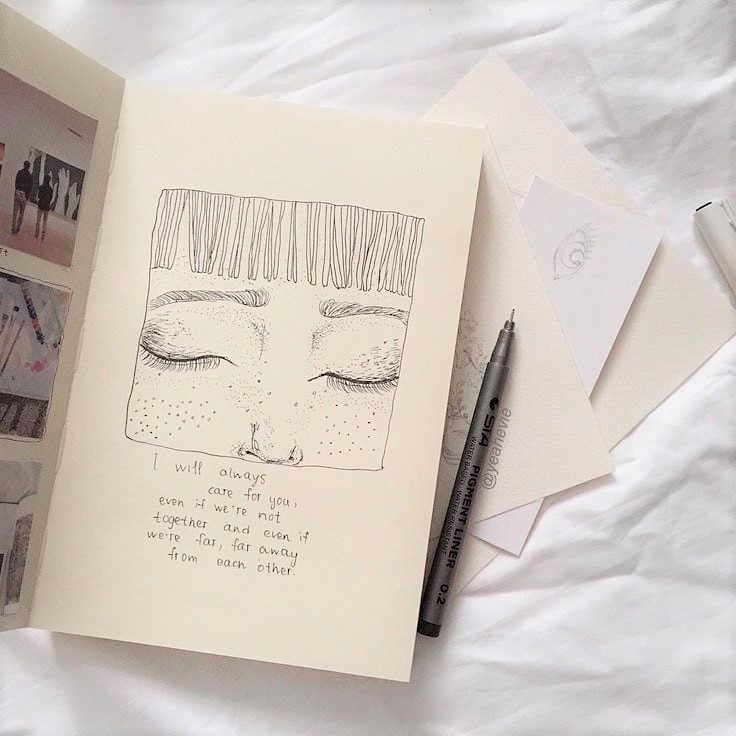 I will always
care for you,
even if we're not
together and even if
we're far, far away
from each other.
STA
PIGMENT LINER
WATER BASED, WATER RESISTANT
0.2
@yeahevie